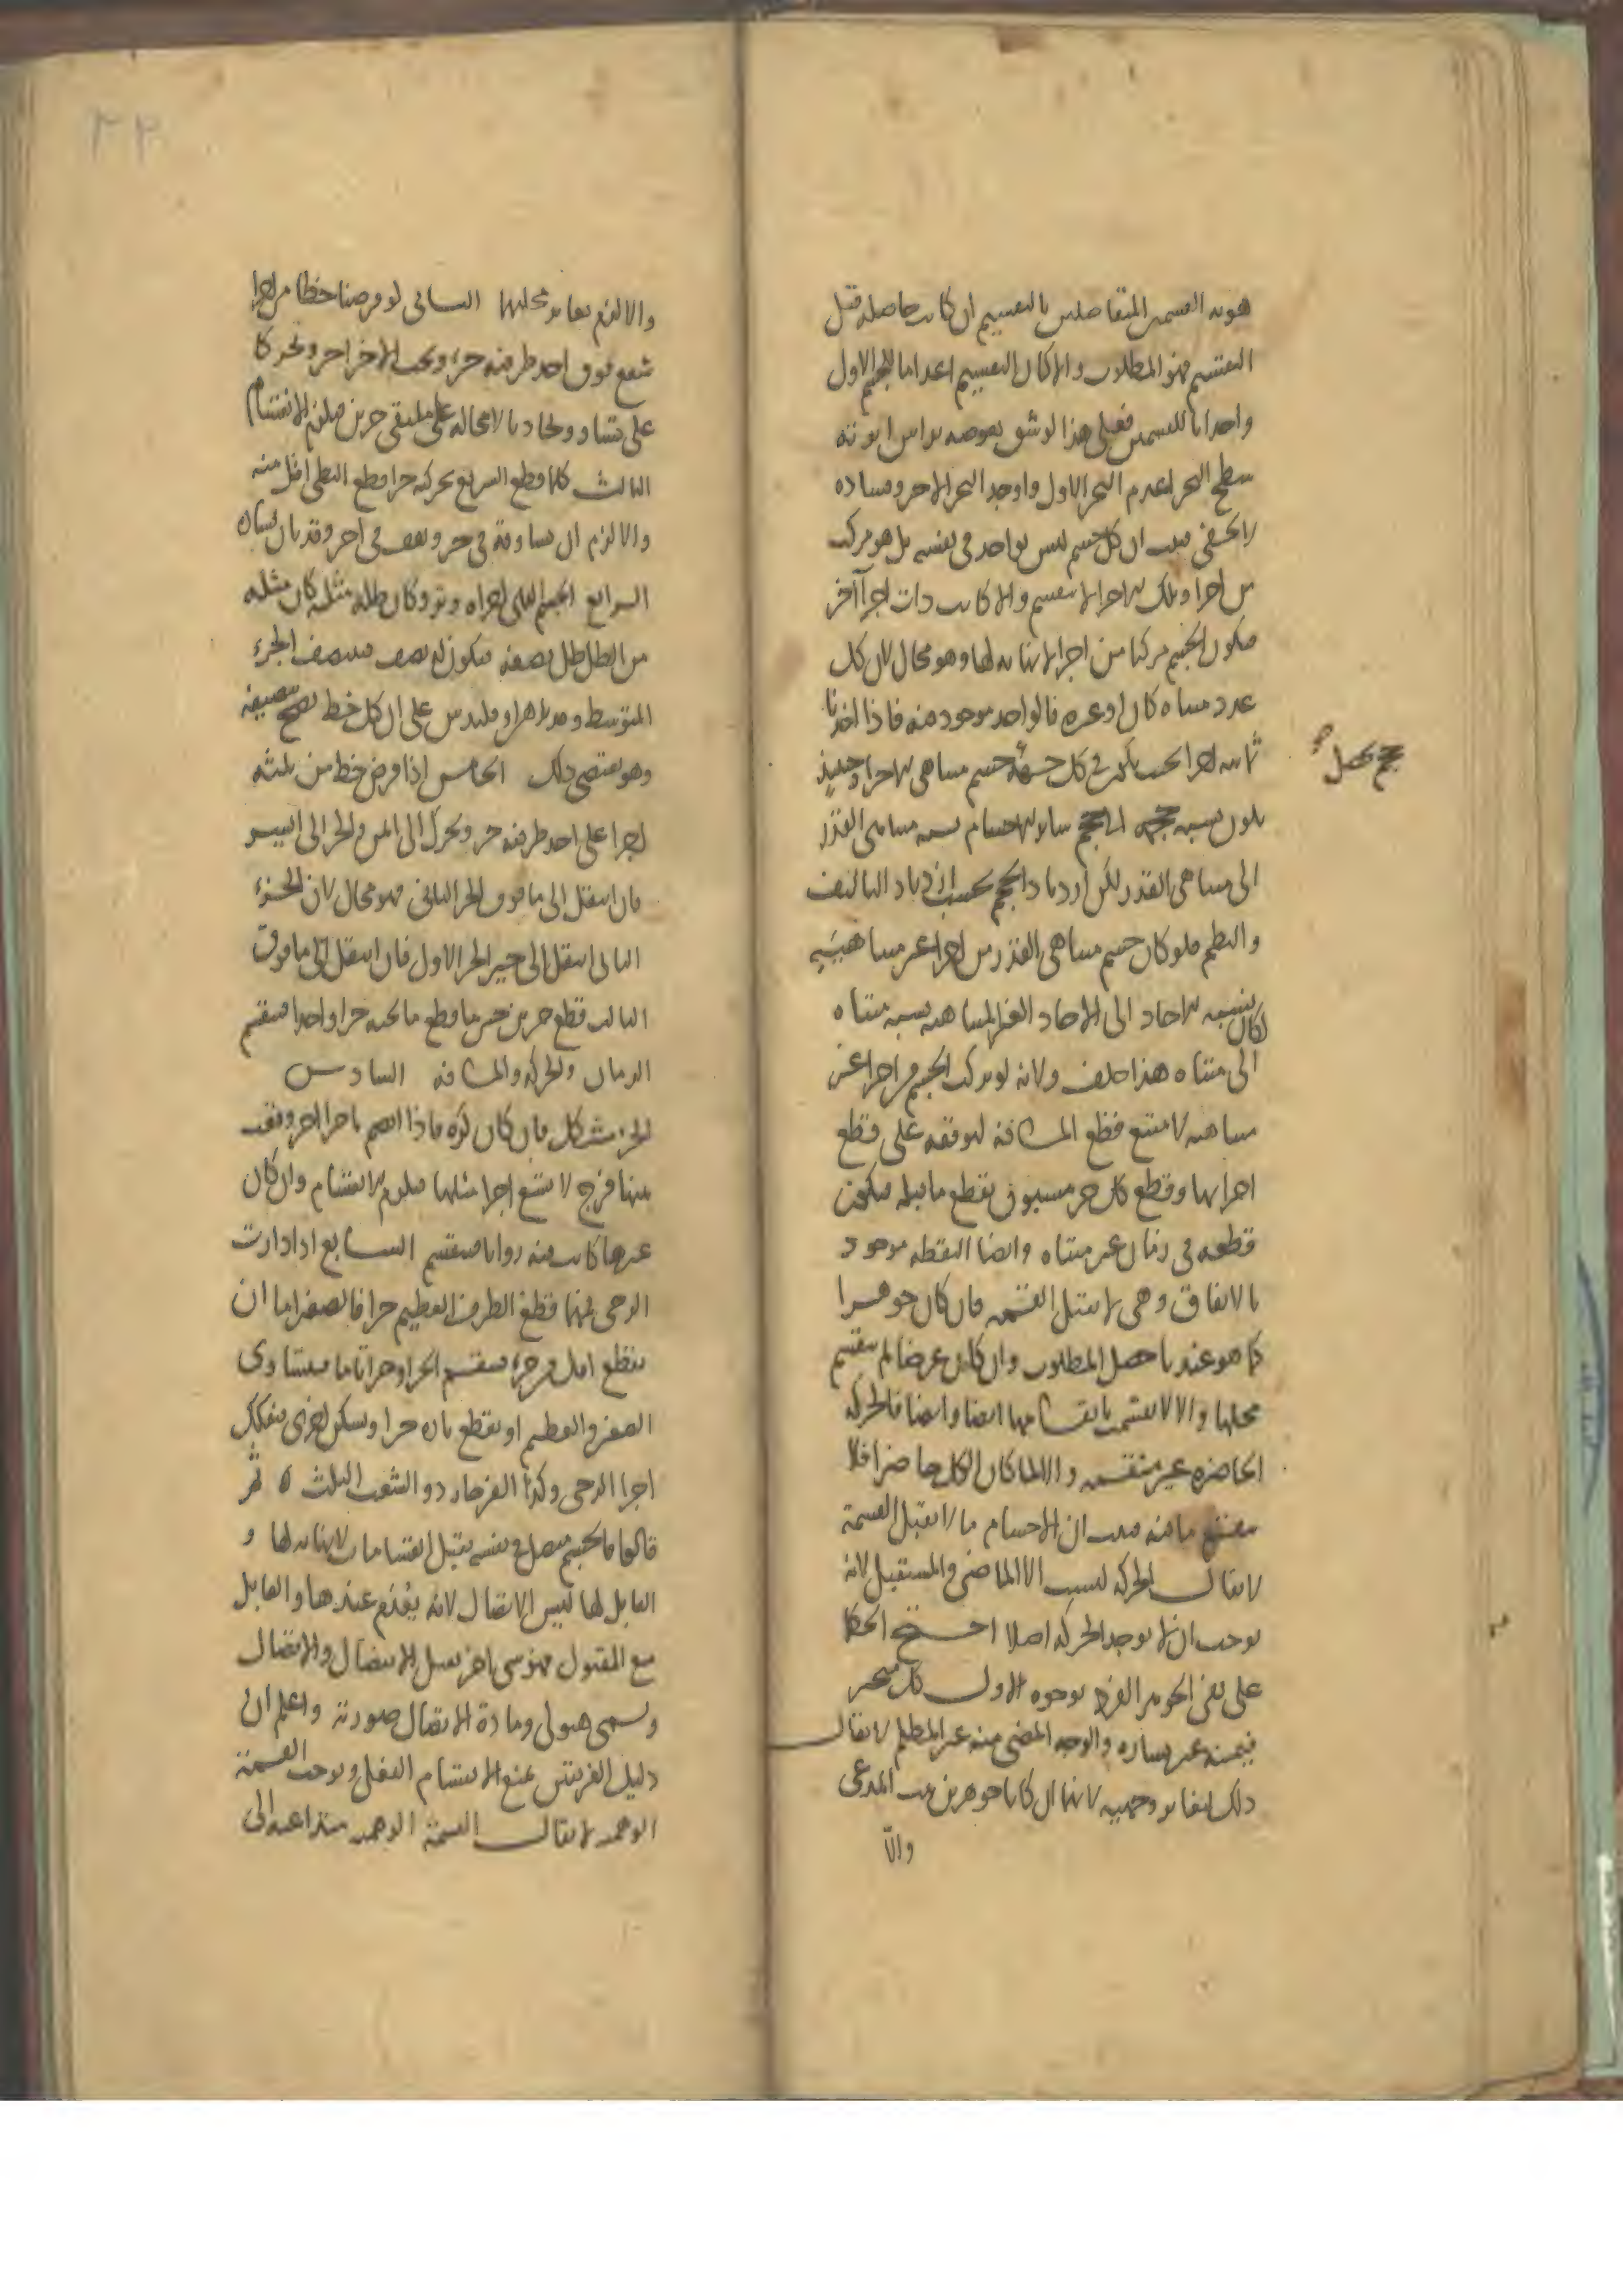 هويه القسمين المتفاصلين بالتقسيم ان كانت حاصله قبل
التقسيم فهو المطلوب والا كان التقسيم اعداما للجسم الاول
واحداثا للقسمين فعلى هذا لو شق بعوضه براس ابرته
سطح البحر اعدم البحر الاول واوجد البحر الاخر وفساده
لا يخفى فثبت ان كل جسم ليس بواحد في نفسه بل هو مركب
من اجزا وتلك الاجزا لا تنقسم والا كانت ذات اجزا آخر
فيكون الجسم مركبا من اجزا لا نهايه لها وهو محال لان كل
عدد متناه كان او غيره فالواحد موجود منه فاذا اخذنا
ثمانيه اجزا بحيث يكون في كل جهة جسم متناهي الاجزا وحينئذ
حجم يحصل
يكون نسبه حجمه الى حجم ساير الاجسام نسبه متناهي القدر
الى متناهي القدر لكن ازدياد الحجم بحسب ازدياد التاليف
والنظم فلو كان جسم متناهي القدر من اجزا غير متناهيه
لكان نسبه الاحاد الى الاحاد الغير المتناهيه نسبه متناه
الى متناه هذا خلف ولانه لو تركب الجسم من اجزا غير
متناهيه لامتنع قطع المسافه لتوقفه على قطع
اجزايها وقطع كل جزء مسبوق بقطع ما قبله فيكون
قطعه في زمان غير متناه وايضا النقطه موجود
بالاتفاق وهي لا تقبل القسمه فان كان جوهرا
كما هو عندنا حصل المطلوب وان كان عرضا لم ينقسم
محلها والا لانقسمت بانقسامها ايضا وايضا فالحركه
الحاضره غير منقسمه والا لما كان الكل حاضرا فلا
ينقسم ما فيه فثبت ان الاجسام ما لا تقبل القسمة
لا يقال الحركه ليست الا الماضي والمستقبل لانه
يوجب ان لا يوجد الحركه اصلا احتج الحكما
على نفي الجوهر الفرد بوجوه الاول كل متحيز
فيمينه غير يساره والوجه المضي منه غير المظلم لا يقال
ذلك لتغاير وجهيه لانهما ان كانا جوهرين ثبت المدعى
والا
والا لزم تغاير محليهما الثاني لو فرضنا خطا من اجزا
شفع فوق احد طرفيه جزء وتحت الاخر اخر وتحركا
على تساو وتحاذيا لا محاله على ملتقى جزين فيلزم الانقسام
الثالث كلما قطع السريع بحركه جزا قطع البطي اقل منه
والا لزم ان يساويه في جزء ويقف في اخر وقد بان فساده
الرابع الجسم الذي اجزاه وتر وكان ظله مثله كان مثله
من الظل ظل نصفه فيكون له نصف فينتصف الجزء
المتوسط وقد برهن اوقليدس على ان كل خط يصح تنصيفه
وهو يقتضي ذلك الخامس اذا فرض خط من ثلثه
اجزا على احد طرفيه جزء وتحرك الى اليمين والجزء الى اليسر
فان انتقل الى ما فوق الجزء الثاني فهو محال لان الجزء
الثاني انتقل الى حيز الجزء الاول فان انتقل الى ما فوق
الثالث قطع جزين حين ما قطع ما تحته جزا واحدا فينقسم
الزمان والحركه والمسافه السادس
الجزء متشكل فان كان كره فاذا انضم باجزا اخر وقعت
بينها فرج لا تسع اجزا مثلها فيلزم الانقسام وان كان
غيرها كانت فيه زوايا فينقسم السابع اذا دارت
الرحى فمهما قطع الطرف العظيم جزا فالصغير اما ان
يقطع اقل من جزء فينقسم الجزء او جزا تاما فيتساوى
الصغير والعظيم او يقطع تاره جزا ويسكن اخرى فيتفكك
اجزا الرحى وكذا الفرجار ذو الشعب الثلث ٥ ثم
قالوا فالجسم متصل في نفسه يقبل انقسامات لا نهايه لها و
القابل لها ليس الاتصال لانه يعدم عندها والقابل
مع المقبول فهو شي اخر يقبل الانفصال والاتصال
ويسمى هيولى ومادة الاتصال صورته واعلم ان
دليل الفريقين يمنع الانقسام الفعلي ويوجب القسمة
الوهميه لا يقال القسمة الوهميه متداعيه الى